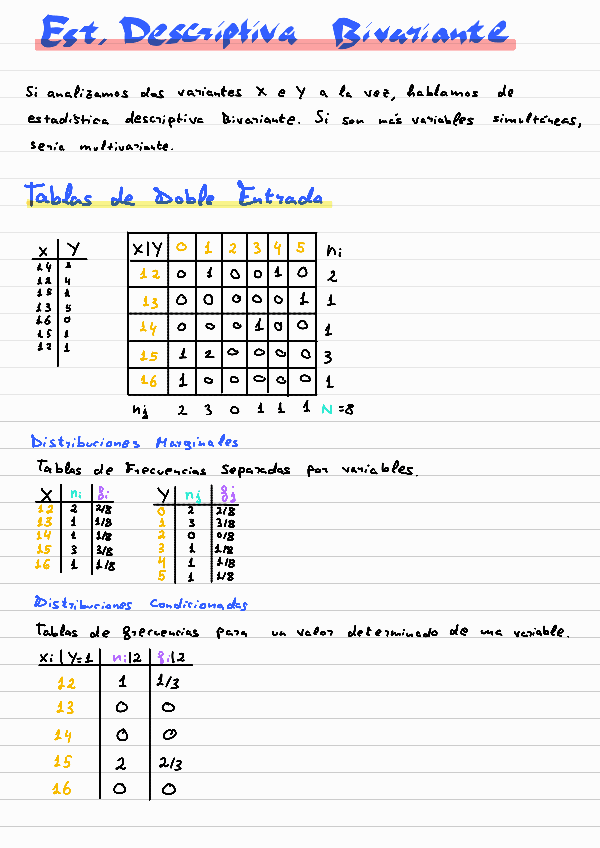 Est. Descriptiva Bivariante
Si analizamos dos variantes X e Y a la vez, hablamos de
estadística descriptiva Bivariante. Si son más variables simultáneas,
sería multivariante.
Tablas de Doble Entrada
X Y
14
12 4
15 1
13 5
16 0
15 1
12 1
X|Y 0 1 2 3 4 5 ni
12 0 1 0 0 1 0 2
13 0 0 0 0 0 1 1
14 0 0 0 1 0 0 1
15 1 2 0 0 0 0 3
16 1 0 0 0 0 0 1
nj 2 3 0 1 1 1 N=8
Distribuciones Marginales
Tablas de Frecuencias separadas por variables.
X ni fi
12 2 2/8
13 1 1/8
14 1 1/8
15 3 3/8
16 1 1/8
Y nj fj
0 2 2/8
1 3 3/8
2 0 0/8
3 1 1/8
4 1 1/8
5 1 1/8
Distribuciones Condicionadas
Tablas de frecuencias para un valor determinado de una variable.
Xi | Y=1 ni|2 fi|2
12 1 1/3
13 0 0
14 0 0
15 2 2/3
16 0 0